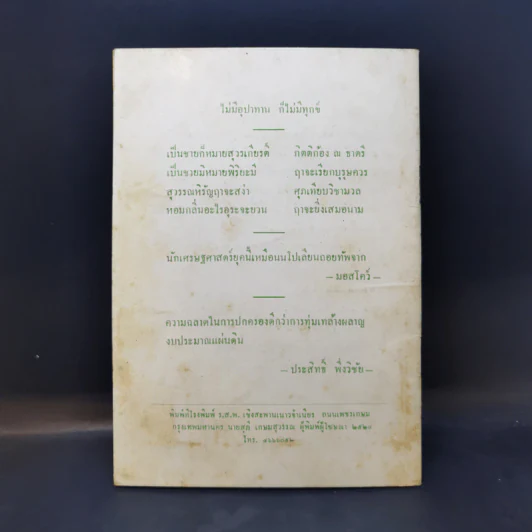 ไม่มีอุปาทาน ก็ไม่มีทุกข์
เป็นชายก็หมายสุวรเกียรติ กิตติก้อง ณ ธาตรี
เป็นชายมิหมายพิริยะมี ฤาจะเรียกบุรุษควร
สุวรรณหิรัญฤาจะสง่า ศุภเทียบวิชามวล
หอมกลิ่นอะไรอุระจะยวน ฤาจะยิ่งเสมอนาม
นักเศรษฐศาสตร์ยุคนี้เหมือนนโปเลียนถอยทัพจาก
— มอสโคว์ —
ความฉลาดในการปกครองดีกว่าการทุ่มเทล้างผลาญ
งบประมาณแผ่นดิน
— ประสิทธิ์ พึ่งวิชัย —
พิมพ์ที่โรงพิมพ์ ร.ส.พ. เชิงสะพานเนาวจำเนียร ถนนเพชรเกษม
กรุงเทพมหานคร นายสุภี เกษมสุวรรณ ผู้พิมพ์ผู้โฆษณา ๒๕๒๐
โทร.